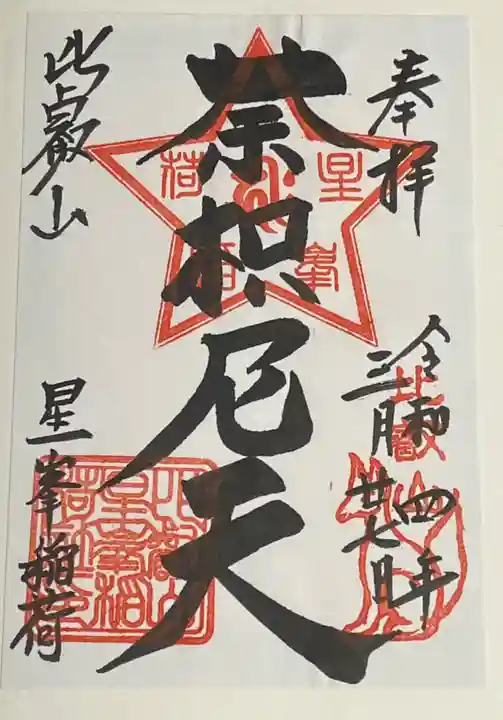 奉拝
令和四年
三月廿七日
荼枳尼天
比叡山
星峯稲荷
星峯稲荷
比叡山